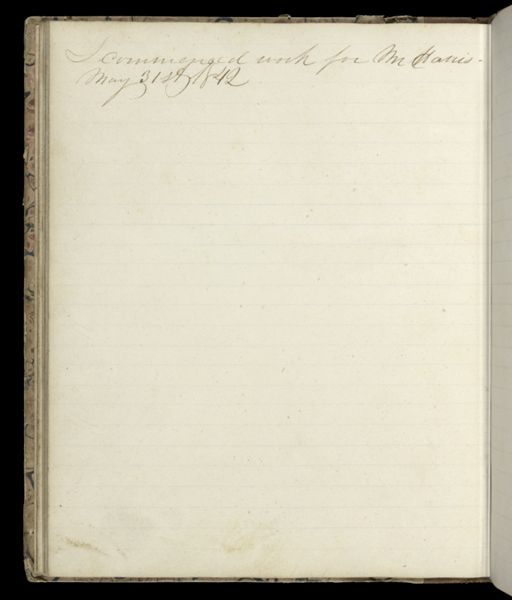 I commenced work for Mr Harris.
May 31st 1842